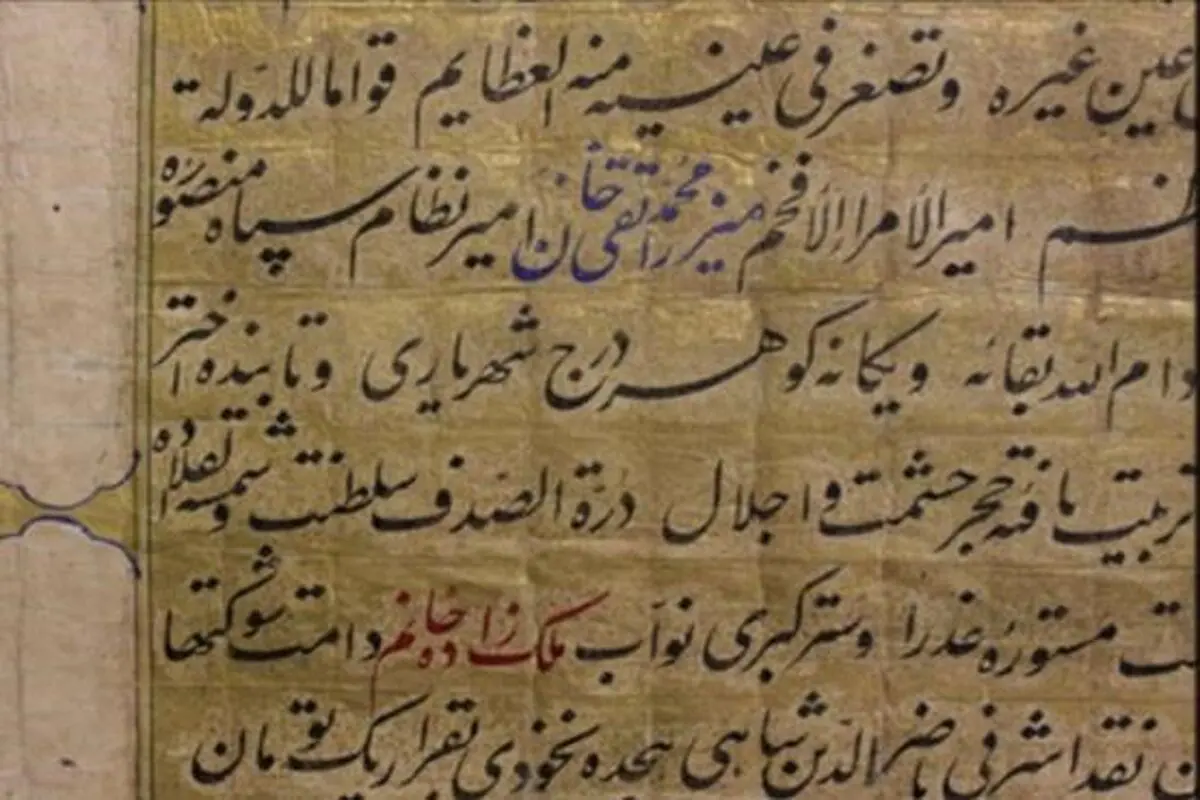 عین غیره وتصغر فی عینیه منه العظایم قواما للدولة
امیر الأمراء الأفخم میرزا محمد تقی خان امیر نظام سپاه منصوره
دام الله بقائه ویگانه گوهر درج شهریاری وتابنده اختر
تربیت یافته حجر حشمت واجلال درة الصدف سلطنت وشمسه القلاده
مستورهٔ عذرا وستر کبری نواب ملک زاده خانم دامت شوکتها
نقد اشرفی ناصر الدین شاهی هجده نخودی بقرار یک تومان